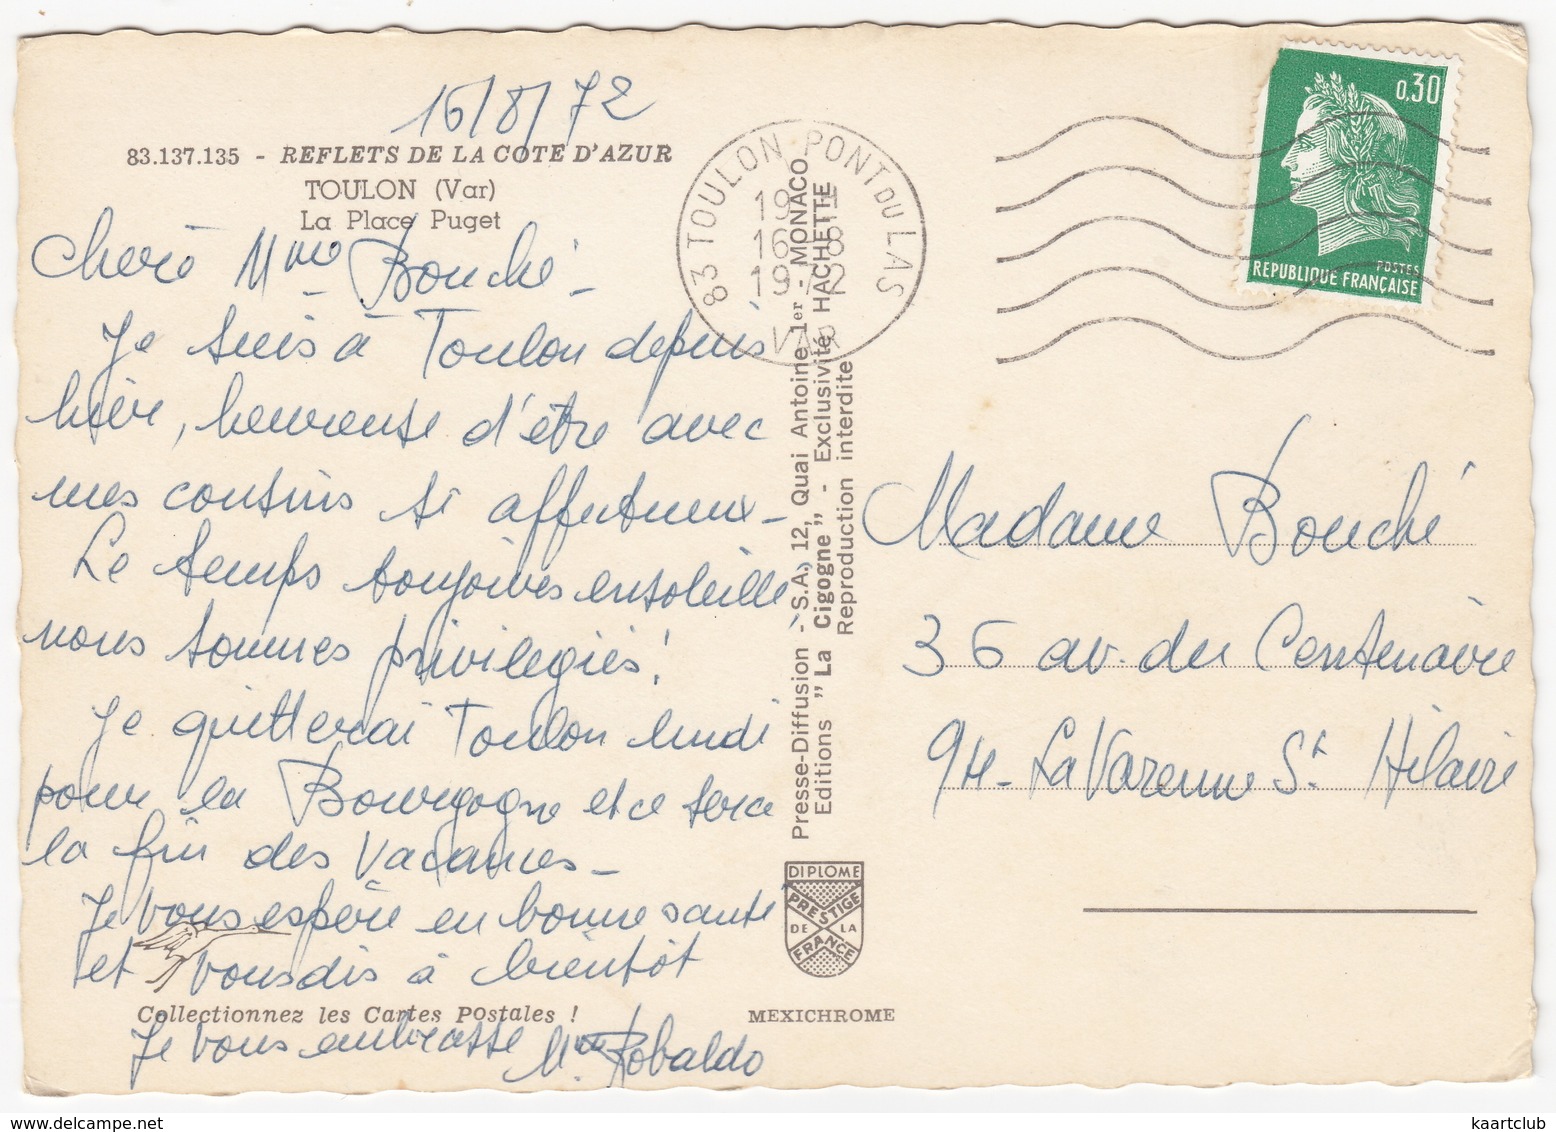 16/8/72
83.137.135 - REFLETS DE LA COTE D'AZUR
TOULON (Var)
La Place Puget
Chère Mme Bouché -
Je suis à Toulon depuis
hier, heureuse d'être avec
mes cousins si affectueux -
Le temps toujours ensoleillé,
nous sommes privilégiés !
Je quitterai Toulon lundi
pour la Bourgogne et ce sera
la fin des vacances -
Je vous espère en bonne santé
et vous dis à bientôt
Collectionnez les Cartes Postales !
Je vous embrasse Mme Robaldo
83 TOULON PONT DU LAS
19
16 8
1972
VAR
Presse-Diffusion - S.A., 12, Quai Antoine 1er - MONACO
Editions "La Cigogne" - Exclusivité HACHETTE
Reproduction interdite
DIPLOME
PRESTIGE
DE LA
FRANCE
MEXICHROME
0,30
POSTES
REPUBLIQUE FRANÇAISE
Madame Bouché
36 av. du Centenaire
94 - La Varenne St Hilaire
kaartclub